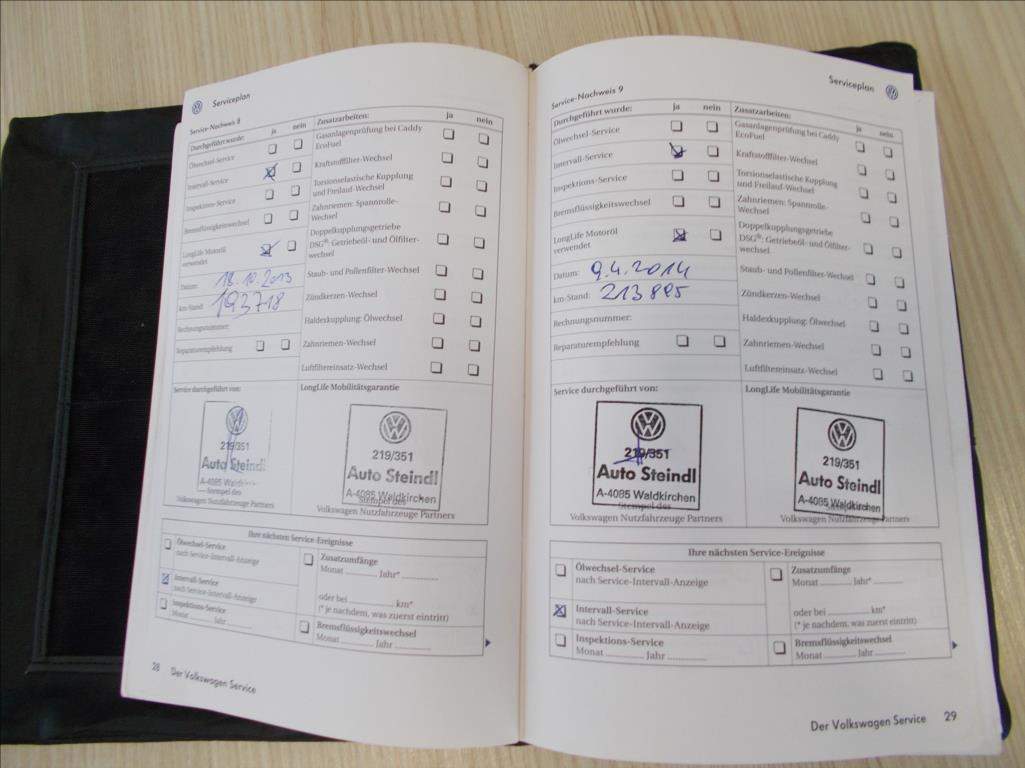 Serviceplan
Service-Nachweis 8
Durchgeführt wurde: ja nein
Ölwechsel-Service
Intervall-Service
Inspektions-Service
Bremsflüssigkeitswechsel
LongLife Motoröl
verwendet
Datum: 18.10.2013
km-Stand: 193718
Rechnungsnummer:
Reparaturempfehlung
Zusatzarbeiten: ja nein
Gasanlagenprüfung bei Caddy
EcoFuel
Kraftstofffilter-Wechsel
Torsionselastische Kupplung
und Freilauf-Wechsel
Zahnriemen: Spannrolle-
Wechsel
Doppelkupplungsgetriebe
DSG®: Getriebeöl- und Ölfilter-
wechsel
Staub- und Pollenfilter-Wechsel
Zündkerzen-Wechsel
Haldexkupplung: Ölwechsel
Zahnriemen-Wechsel
Luftfiltereinsatz-Wechsel
Service durchgeführt von:
219/351
Auto Steindl
A-4085 Waldkirchen
Stempel des
Volkswagen Nutzfahrzeuge Partners
LongLife Mobilitätsgarantie
219/351
Auto Steindl
A-4085 Waldkirchen
Stempel des
Volkswagen Nutzfahrzeuge Partners
Ihre nächsten Service-Ereignisse
Ölwechsel-Service
nach Service-Intervall-Anzeige
Intervall-Service
nach Service-Intervall-Anzeige
Inspektions-Service
Monat Jahr
Zusatzumfänge
Monat Jahr*
oder bei km*
(* je nachdem, was zuerst eintritt)
Bremsflüssigkeitswechsel
Monat Jahr
28 Der Volkswagen Service
Serviceplan
Service-Nachweis 9
Durchgeführt wurde: ja nein
Ölwechsel-Service
Intervall-Service
Inspektions-Service
Bremsflüssigkeitswechsel
LongLife Motoröl
verwendet
Datum: 9.4.2014
km-Stand: 213895
Rechnungsnummer:
Reparaturempfehlung
Zusatzarbeiten: ja nein
Gasanlagenprüfung bei Caddy
EcoFuel
Kraftstofffilter-Wechsel
Torsionselastische Kupplung
und Freilauf-Wechsel
Zahnriemen: Spannrolle-
Wechsel
Doppelkupplungsgetriebe
DSG®: Getriebeöl- und Ölfilter-
wechsel
Staub- und Pollenfilter-Wechsel
Zündkerzen-Wechsel
Haldexkupplung: Ölwechsel
Zahnriemen-Wechsel
Luftfiltereinsatz-Wechsel
Service durchgeführt von:
219/351
Auto Steindl
A-4085 Waldkirchen
Stempel des
Volkswagen Nutzfahrzeuge Partners
LongLife Mobilitätsgarantie
219/351
Auto Steindl
A-4085 Waldkirchen
Volkswagen Nutzfahrzeuge Partners
Ihre nächsten Service-Ereignisse
Ölwechsel-Service
nach Service-Intervall-Anzeige
Intervall-Service
nach Service-Intervall-Anzeige
Inspektions-Service
Monat Jahr
Zusatzumfänge
Monat Jahr*
oder bei km*
(* je nachdem, was zuerst eintritt)
Bremsflüssigkeitswechsel
Monat Jahr
Der Volkswagen Service 29